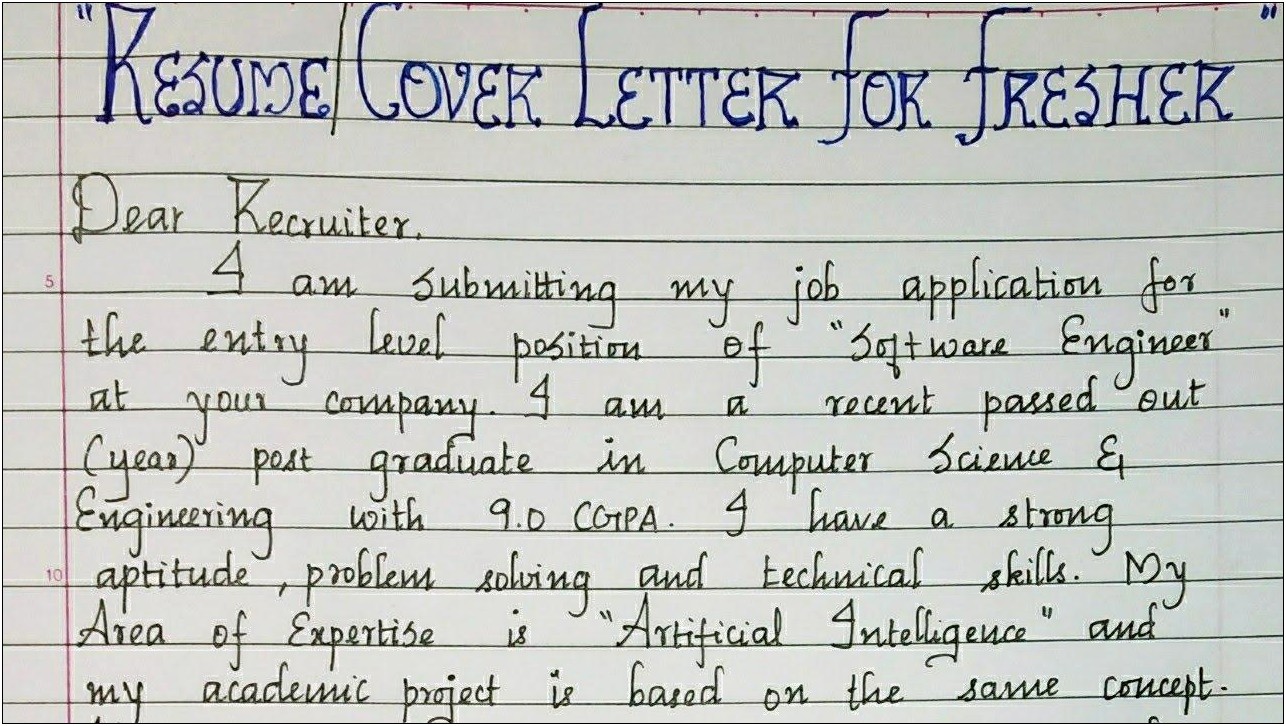 "RESUME/COVER LETTER FOR FRESHER"
Dear Recruiter.
I am submitting my job application for
5
the entry level position of "Software Engineer"
at your company. I am a recent passed out
(year) post graduate in Computer Science &
Engineering with 9.0 CGPA. I have a strong
10
aptitude, problem solving and technical skills. My
Area of Expertise is "Artificial Intelligence" and
my academic project is based on the same concept.